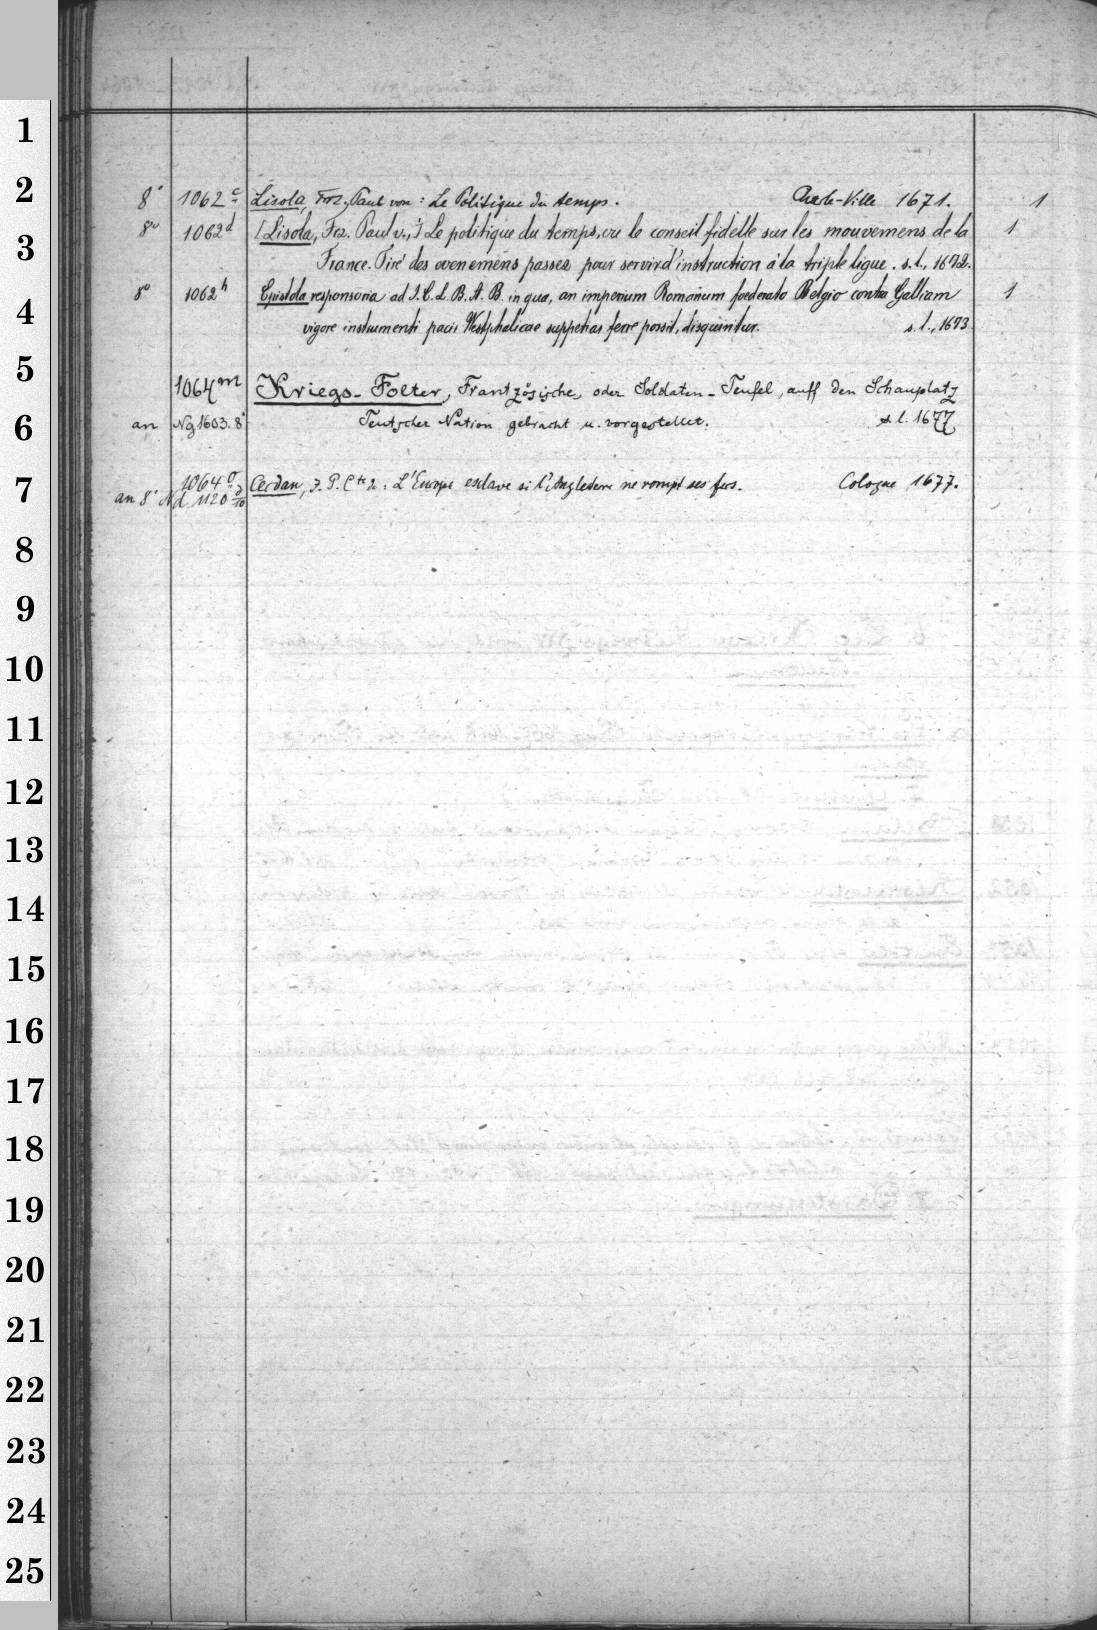 1
2
3
4
5
6
7
8
9
10
11
12
13
14
15
16
17
18
19
20
21
22
23
24
25
8° 1062 c Lisola, Frz. Paul von: Le Politique du temps. Ville 1671. 1
8° 1062 d [Lisola, Frz. Paul v.,] Le politique du temps, ou le conseil fidelle sur les mouvemens de la
France. Tiré des evenemens passez pour servir d'instruction à la triple ligue. s. l., 1672. 1
8° 1062 h Epistola responsoria ad I. C. L. B. A. B. in qua, an imperium Romanum foederato Belgio contra Galliam
vigore instrumenti pacis Westphalicae suppetias ferre possit, disquiritur. s. l., 1673 1
1064 m Kriegs-Folter, Frantzösische, oder Soldaten-Teufel, auff den Schauplatz
an Ng 1603. 8° Teutscher Nation gebracht u. vorgestellet. s. l. 1677
1064 o Cerdan, J. P. Cte d.: L'Europe esclave si l'Angleterre ne rompt ses fers. Cologne 1677.
an 8° Nd 1120